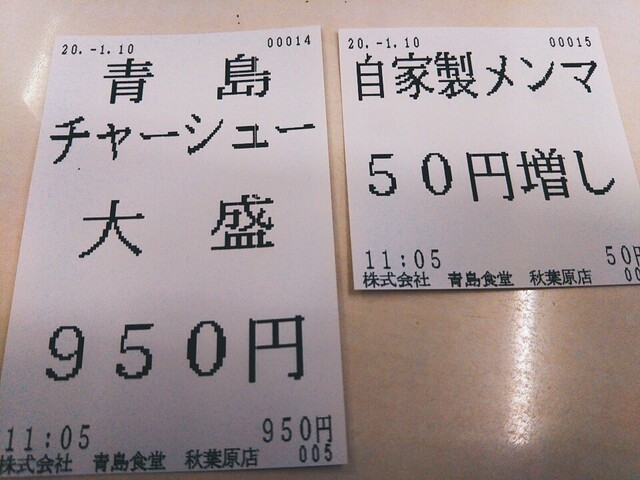 20.-1.10 00014
青島
チャーシュー
大盛
950円
11:05 950円
株式会社 青島食堂 秋葉原店 005
20.-1.10 00015
自家製メンマ
50円増し
11:05 50円
株式会社 青島食堂 秋葉原店 00